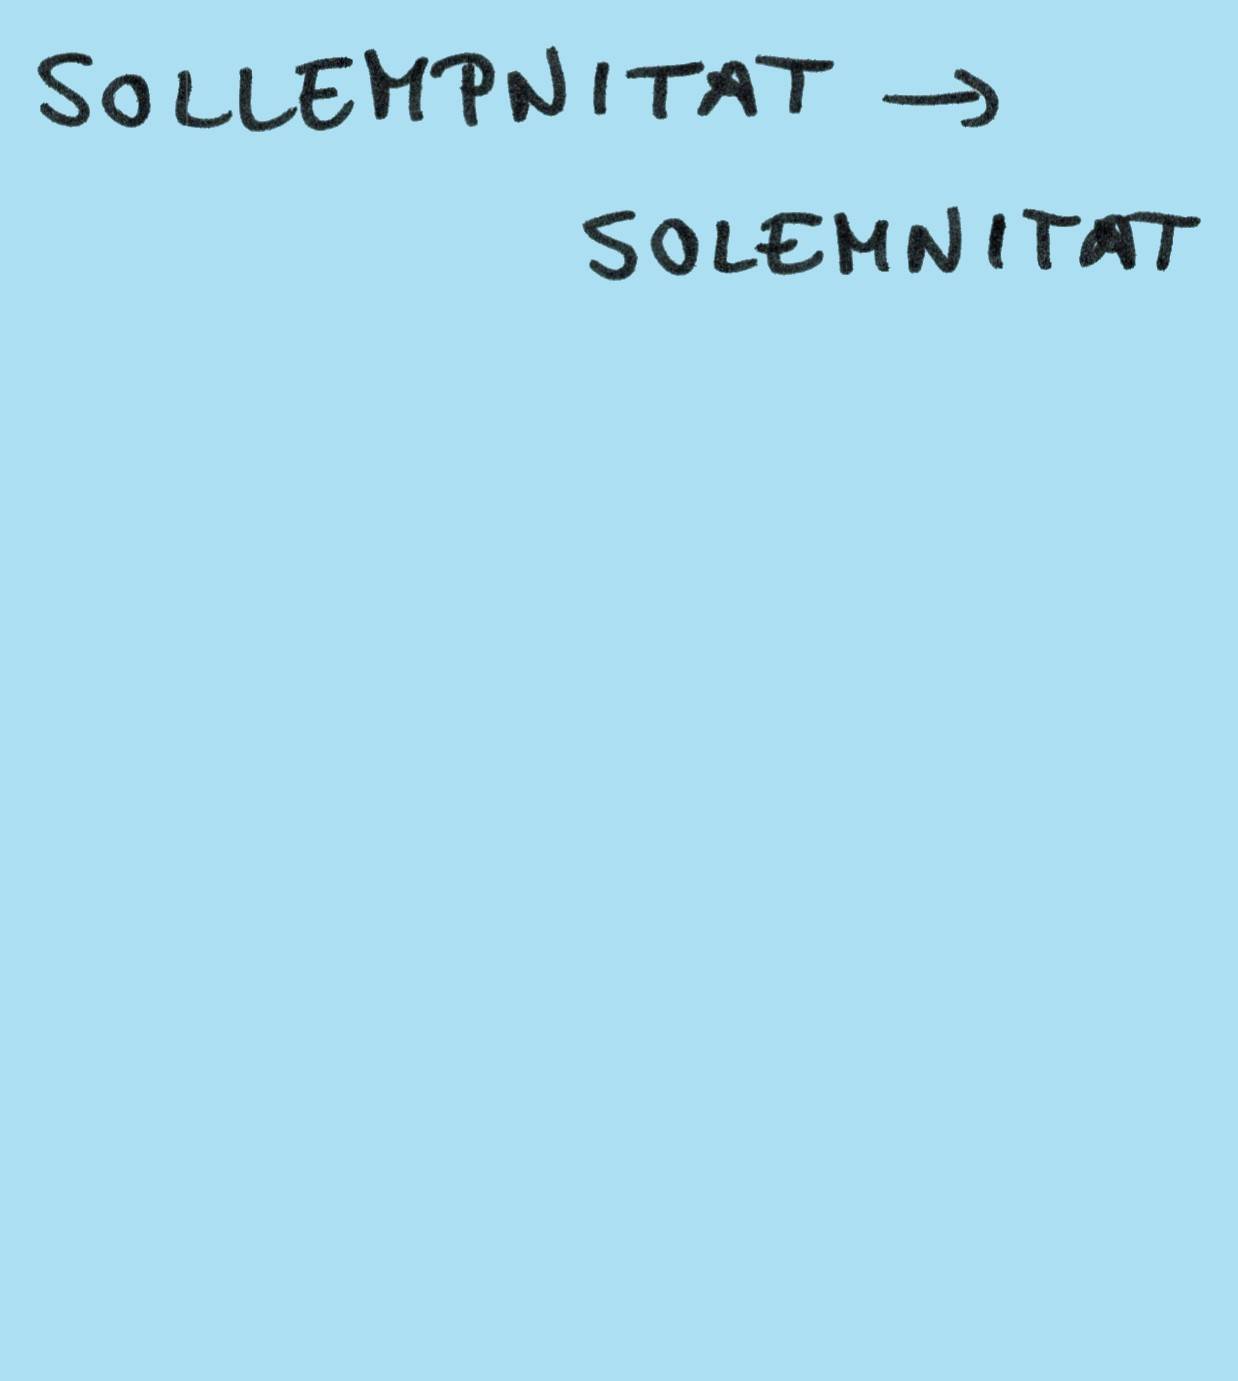 SOLLEMPNITAT →
SOLEMNITAT